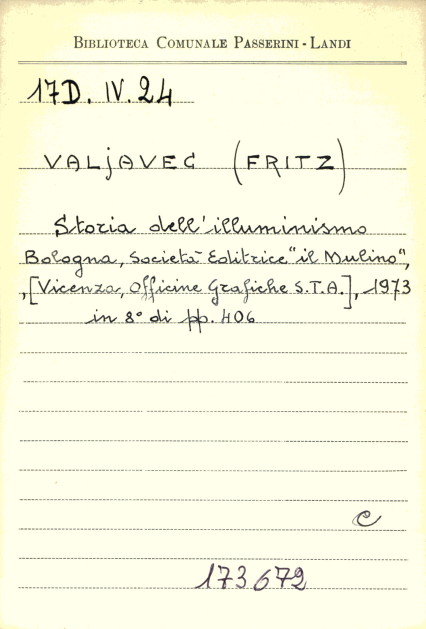 BIBLIOTECA COMUNALE PASSERINI - LANDI
17D. IV. 24
VALJAVEC (FRITZ)
Storia dell'illuminismo
Bologna, Società Editrice "il Mulino",
,[Vicenza, Officine Grafiche S.T.A.], 1973
in 8° di pp. 406
C
173672